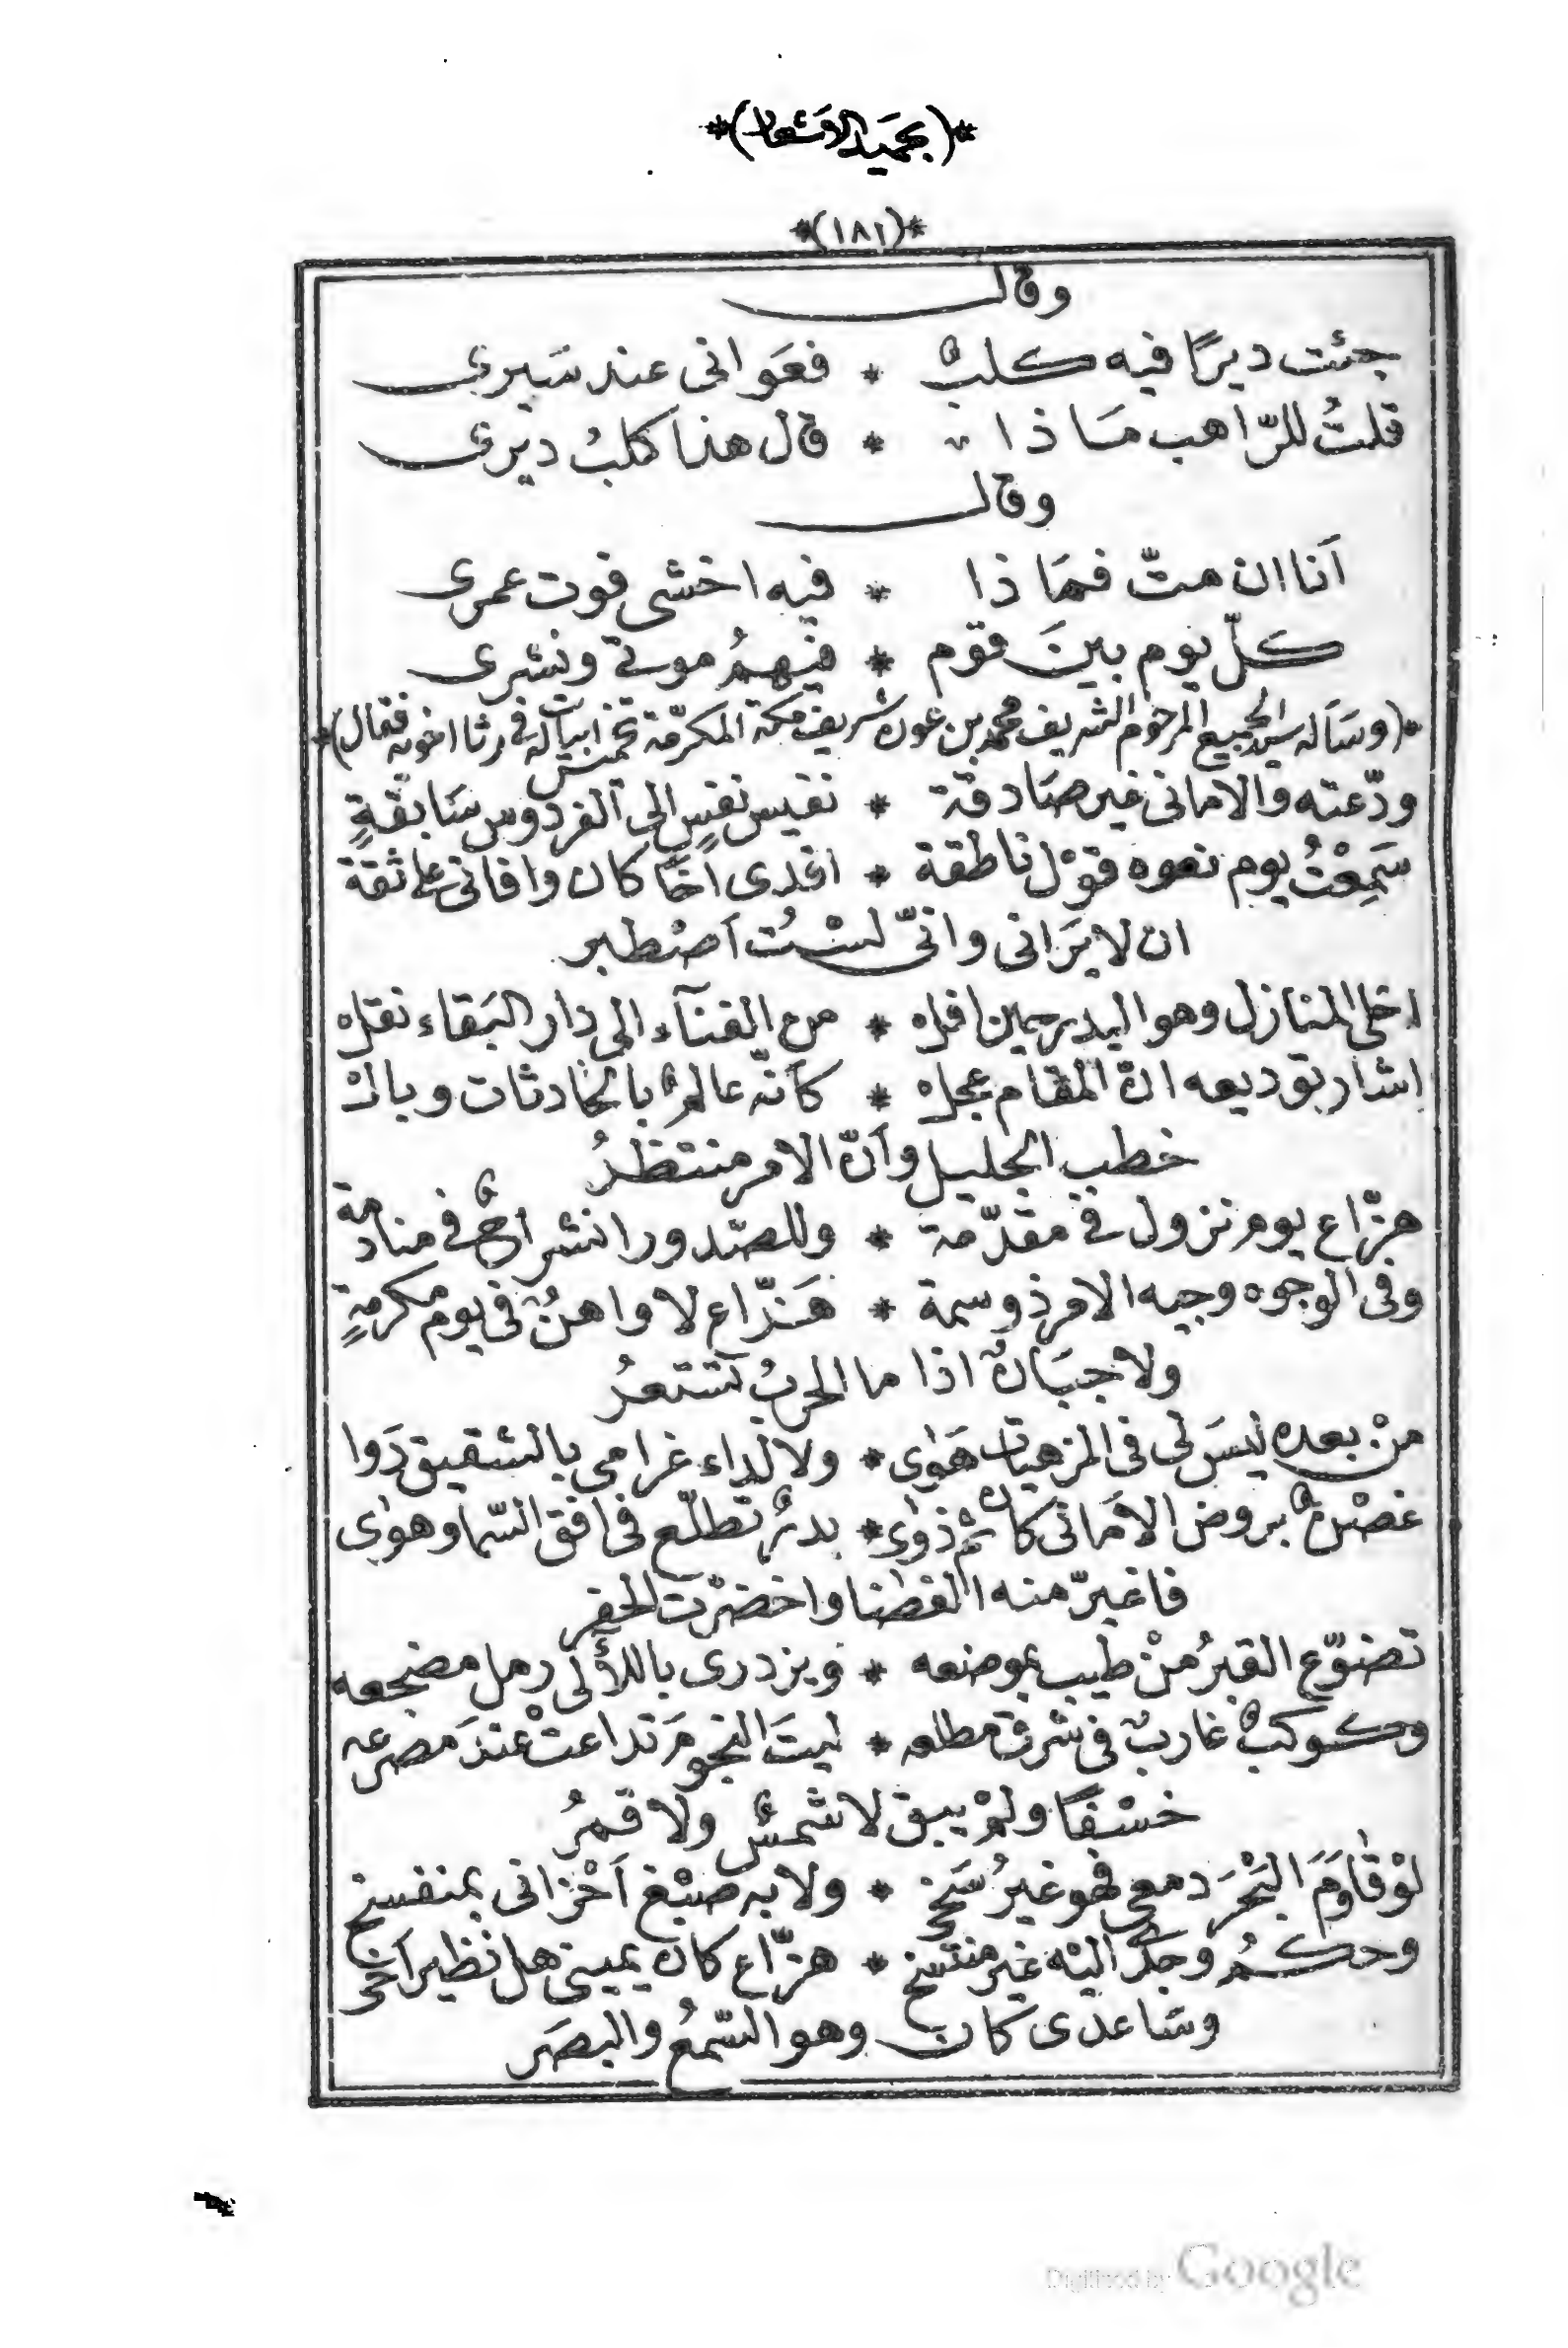 *(بحميد الاشعار)*
*(١٨١)*
وقال
جئت ديرًا فيه كلبٌ * فعَوانى عند سَيرى
قلتُ للرّاهب مَاذا * قال هذا كلبُ ديرى
وقال
اَنا ان متّ فمَاذا * فيه اخشى فوت عمرى
كلّ يوم بينَ قوم * فيهمُ موتى ونشرى
*(وسَأله سيد الجميع المرحوم الشريف محمد بن عون شريف مكة المكرّمة تخميس ابيات له فى رثا اخوته فقال)*
ودّعته والامانى غير صَادقة * نفيس نفسٍ الى الفردوس سَابقةٍ
سَمِعْتُ يوم نعوه قوْل ناطقة * افدى اخًا كان وافانى على ثقة
ان لا يَرَانى وانّى لسْتُ اَصْطبر
اخلى المنازل وهو البدر حين افله * من الفنآء الى دار البَقاء نقله
اشار بتوديعه انّ المقام عجله * كأنّه عالمٌ بالحَادثات وبالـ
خطب الجليل وأنّ الامر منتظرُ
هزّاع يوم نزول فى مقدّمة * وللصّدور انشراحٌ فى منادمة
وفى الوجوه وجيه الامر ذو سمة * هَزّاع لا واهنٌ فى يوم مكرمةٍ
ولا جبَانٌ اذا ما الحربُ تَستعرُ
منْ بعده ليسَ لى فى المزهيات هَوٰى * ولا لداء غرامى بالشقيق دَوا
غصْنٌ بروض الاَمانى كان ثم ذوٰى * بدرٌ تطلّع فى افق السّما وهوٰى
فاغبرّ منه الفضا واخضرّت الحفر
تضوّع القبرُ منْ طيب بموضعه * ويزدرى باللآلى رمل مضجعه
وكوكبٌ غاربٌ فى شرق مطلعه * ليتَ النجومَ تداعتْ عندَ مصرعه
خسْفًا ولمْ يبق لا شمسٌ ولا قمرُ
لوْ قاوَمَ البَحْرَ دمعى فهو غيرُ سَخى * ولا به صبْغ اَحْزانى بمنفسخ
وحكمُ وجدى اليْه غير منتسخ * هزّاع كان يمينى هل نظير اَخى
وسَاعدى كان وهو السّمعُ والبصَر
Digitized by Google